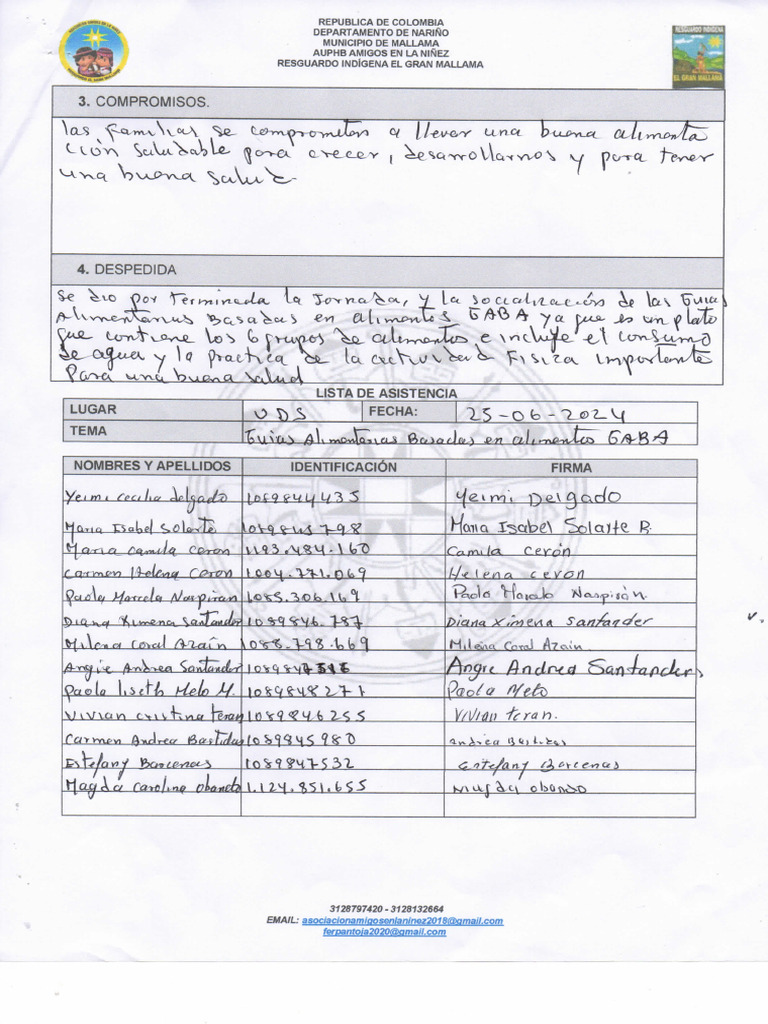 REPUBLICA DE COLOMBIA
DEPARTAMENTO DE NARIÑO
MUNICIPIO DE MALLAMA
AUPHB AMIGOS EN LA NIÑEZ
RESGUARDO INDÍGENA EL GRAN MALLAMA
RESGUARDO INDIGENA
EL GRAN MALLAMA
3. COMPROMISOS.
las familias se comprometen a llevar una buena alimenta
ción saludable para crecer, desarrollarnos y para tener
una buena salud
4. DESPEDIDA
Se dio por terminada la Jornada, y la socialización de las Guias
Alimentarias Basadas en alimentos GABA ya que es un plato
que contiene los 6 grupos de alimentos e incluye el consumo
de agua y la practica de la actividad Fisiza importante
Para una buena salud
LISTA DE ASISTENCIA
LUGAR UDS FECHA: 25-06-2024
TEMA Guias Alimentarias Basadas en alimentos GABA
NOMBRES Y APELLIDOS IDENTIFICACIÓN FIRMA
Yeimi cecilia delgado 1089844435 Yeimi Delgado
Maria Isabel Solarte 1089845798 Maria Isabel Solarte R.
Maria camila ceron 1193.484.160 Camila cerón
Carmen Helena Ceron 1004.771.069 Helena ceron
Paola Marcela Naspiran 1085.306.169 Paola Marcela Naspirán.
Diana Ximena Santander 1089846.787 Diana Ximena santander
Milena Coral Azaín 1088.798.669 Milena Coral Azain.
Angie Andrea Santander Angie Andrea Santander
Paola liseth Melo M. 1089848271 Paola Melo
Vivian cristina teran 1089846255 Vivian teran.
Carmen Andrea Bastidas 1089845980 andrea Bastidas
Estefany Barcenas 1089847532 Estefany Barcenas
Magda Carolina Obando 1.124.851.655 Magda obando
3128797420 - 3128132664
EMAIL: asociacionamigosenlaninez2018@gmail.com
ferpantoja2020@gmail.com